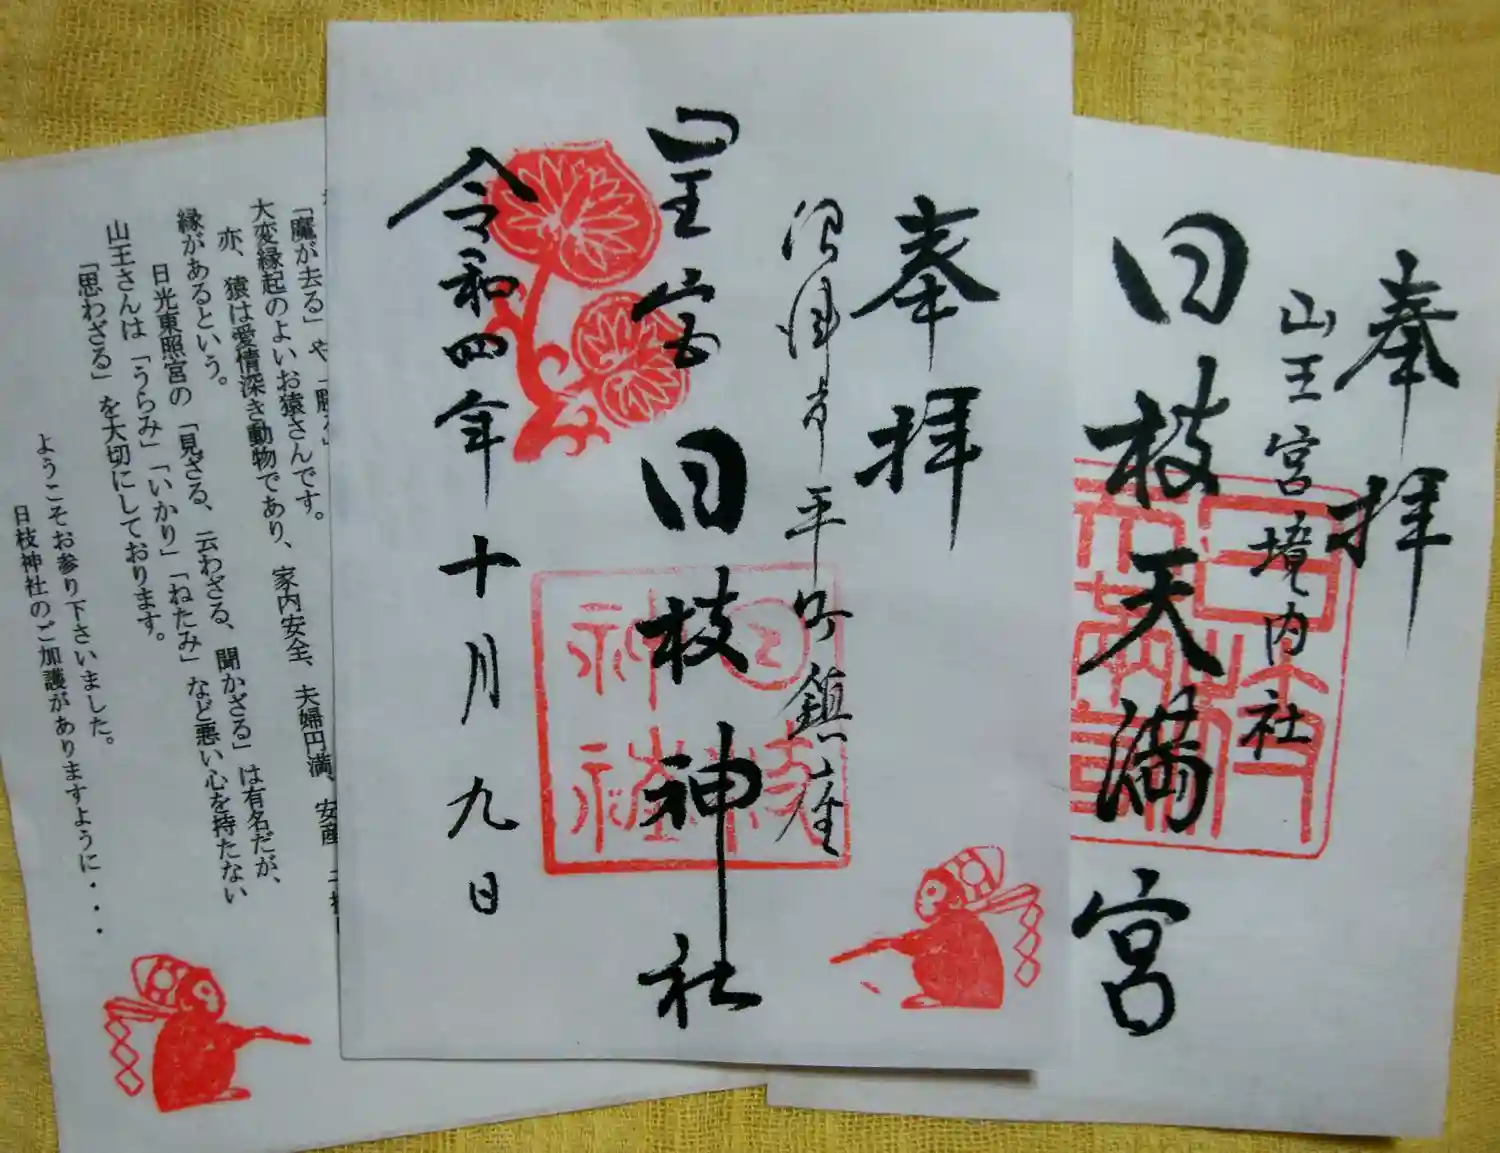 奉拝
山王宮境内社
日枝天満宮
奉拝
沼津市平町鎮座
山王宮
日枝神社
令和四年十月九日
日枝神社
「魔が去る」や「勝る」
大変縁起のよいお猿さんです。
亦、猿は愛情深き動物であり、家内安全、夫婦円満、安産
縁があるという。
日光東照宮の「見ざる、云わざる、聞かざる」は有名だが、
山王さんは「うらみ」「いかり」「ねたみ」など悪い心を持たない
「思わざる」を大切にしております。
ようこそお参り下さいました。
日枝神社のご加護がありますように・・・